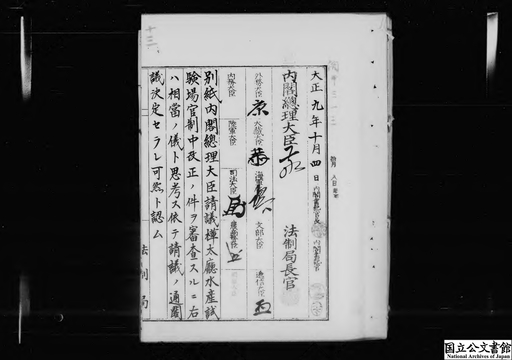 大正九年十月四日
内閣書記官長
内閣書記官
内閣總理大臣
法制局長官
外務大臣
大藏大臣
海軍大臣
文部大臣
遞信大臣
内務大臣
陸軍大臣
司法大臣
農商務大臣
別紙内閣總理大臣請議樺太廳水産試
験場官制中改正ノ件ヲ審査スルニ右
ハ相當ノ儀ト思考ス依テ請議ノ通閣
議決定セラレ可然ト認ム
法制局
国立公文書館
National Archives of Japan